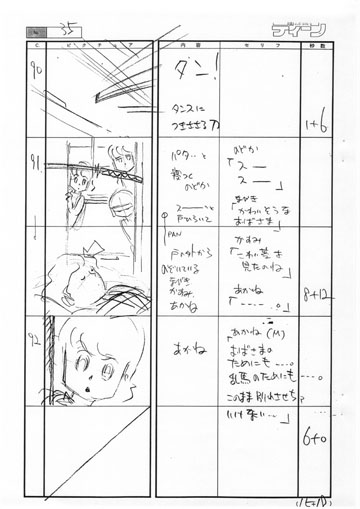 35
ディーン
C.
ピクチュア
内容
セリフ
秒数
90
ダン!
タンスに
つきささる刀
1+6
91
パタ…と
寝つく
のどか
スーーーッと
戸がひらいて
PAN
戸のすきから
のぞいている
なびき
かすみ
あかね
のどか
「スー
スー」
なびき
「かわいそうな
おばさま」
かすみ
「これも夢を
見たのね」
あかね
「‥‥‥。」
8+12
92
あかね
「あかね(M)
おばさまの
ためにも‥‥。
乱馬のためにも‥‥。
このまま別れさせちゃ
いけない…」
6+0